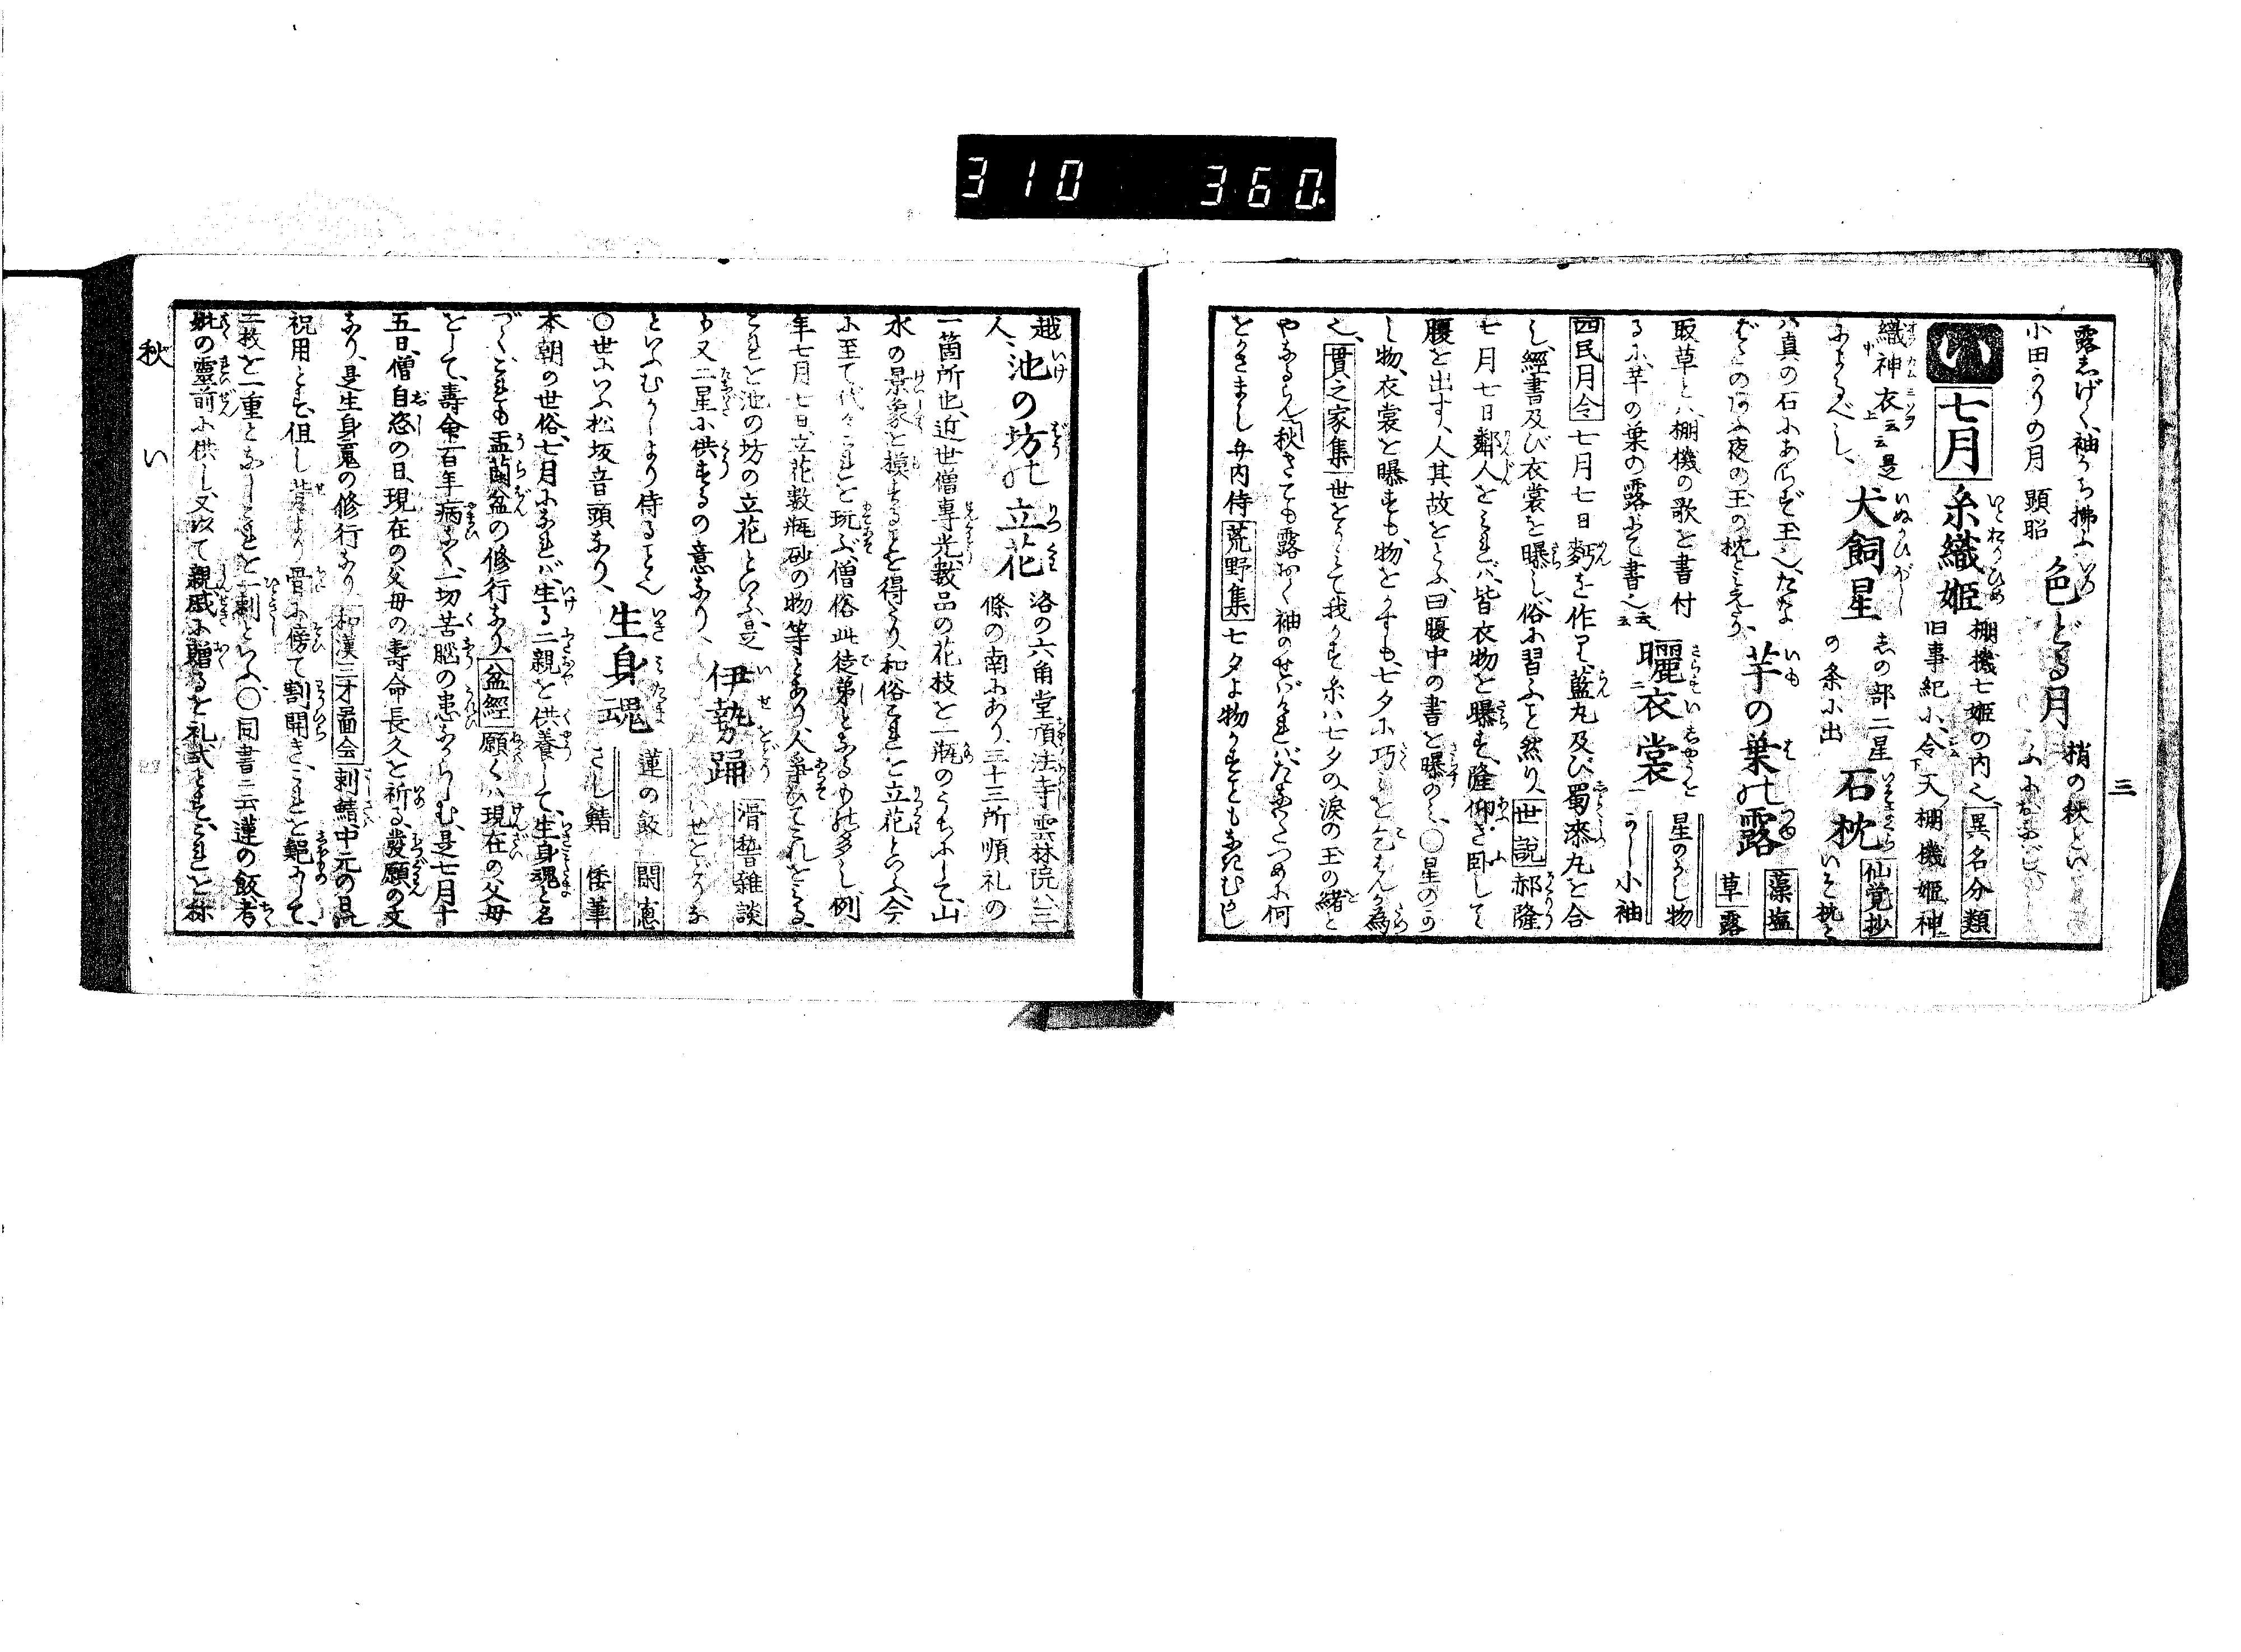 310 360
三
露しげく袖うち拂ふ 色どる月 梢の秋とい
小田かりの月 顕昭
い 七月 糸織姫 棚機七姫の内也 異名分類
旧事紀小、令天棚機姫神
織神衣云云是
によるべし、 犬飼星 しの部二星
の条小出 石枕 仙覚抄 いそ枕と
ハ真の石にあらず玉也、たな
ばたのあふ夜の玉の枕と 芋の葉の露 藻塩草 露
取草とハ、棚機の歌を書付
るに、芋の葉の露にて書也云云 曬衣裳 星のかし物 かし小袖
四民月令 七月七日麪を作り、藍丸及び蜀漆丸を合
し、經書及び衣裳を曝し、俗に習ふこと然り、世説 郝隆
七月七日鄰人をみれバ、皆衣物を曝す、隆仰ぎ臥して
腹を出す、人其故をとふ、曰腹中の書を曝のミ、〇星のか
し物、衣裳を曝すも、物をかすも、七夕に巧を乞んが為
也、貫之家集 世をうみて我かす糸ハ七夕の涙の玉の緒と
やなるらん 秋さても露おく袖のせばけれバたなバたつめに何
をかさまし 弁内侍 荒野集 七夕よ物かすともなきむかし
越人 池の坊の立花 洛の六角堂頂法寺雲林院ハ三
條の南にあり、三十三所順礼の
一箇所也、近世僧専光、数品の花枝を一瓶のうちにして、山
水の景象を摸することを得たり、和俗これを立花といふ、今
に至て代々これを玩ぶ、僧俗此徒弟となるもの多し、例
年七月七日、立花数瓶、砂の物等あり、人争ひてこれをみる、
これを池の坊の立花といふ、是
も又二星に供するの意なり、 伊勢踊 滑稽雜談 いせをどりな
といふ、むかしより侍ること也
〇世にいふ松坂音頭なり、 生身魂 蓮の飯 さし鯖 閑窓倭筆
本朝の世俗、七月になれバ、生る二親を供養して、生身魂と名
づく、これも盂蘭盆の修行なり、盆經 願くハ現在の父母
をして、壽命百年病なく、一切苦脳の患なからしむ、是七月十
五日、僧自恣の日、現在の父母の壽命長久を祈る、發願の文
なり、是生身䰟の修行なり 和漢三才圖会 刺鯖、中元の日
祝用とす、但し背より骨に傍て割開き、これを𩸆にして、
二枚を一重となしこれを一刺といふ、〇同書云蓮の飯、考
妣の靈前に供し、又以て親戚に贈るを礼式とす、これを荷
秋 い